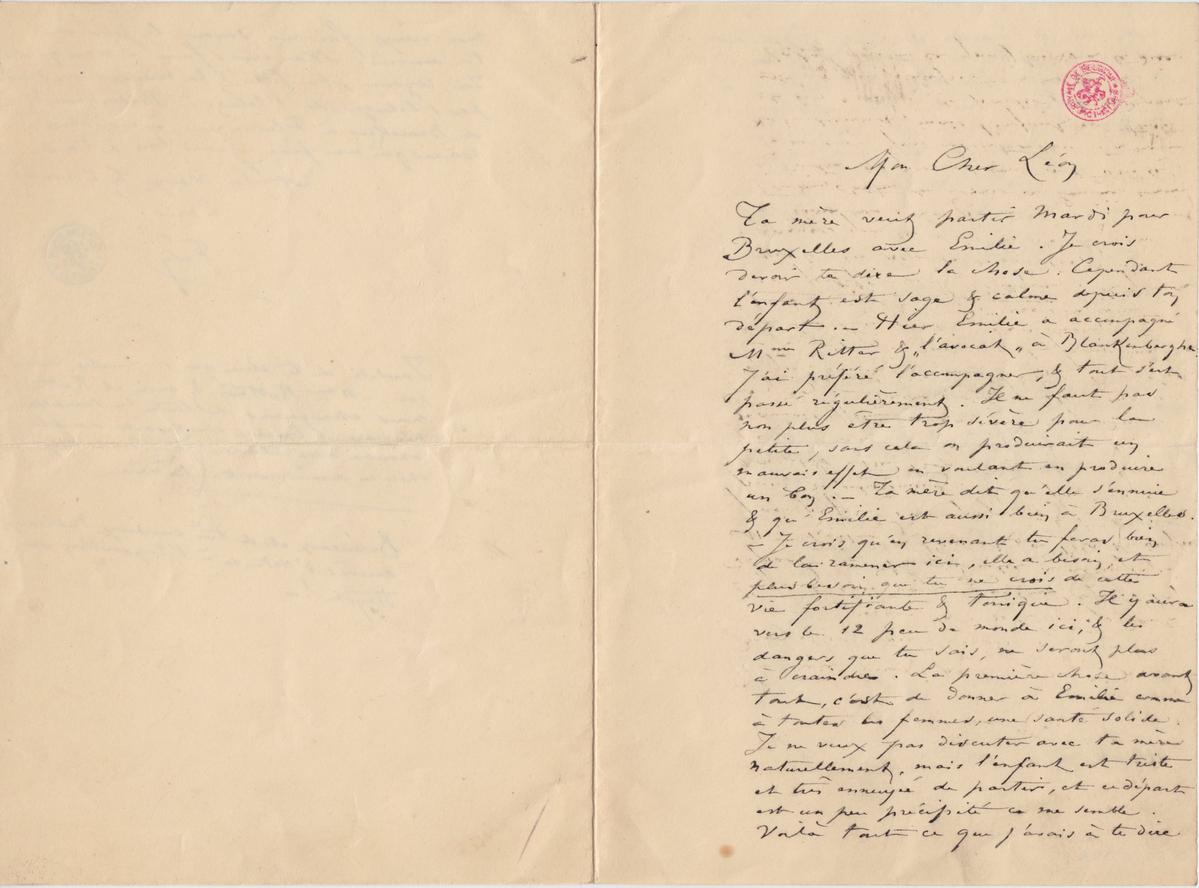 Mon Cher Léon
Ta mère veut partir Mardi pour
Bruxelles avec Emilie. Je crois
devoir te dire la chose. Cependant
l'enfant est sage & calme depuis ton
départ. – Hier Emilie a accompagné
Mme Ritter & „l'avocat„ à Blankenberghe.
J'ai préféré l'accompagner, & tout s'est
passé régulièrement. Il ne faut pas
non plus etre trop sévère pour la
petite, sans cela on produirait un
mauvais effet en voulant en produire
un bon. – Ta mère dit qu'elle s'ennuie
& qu'Emilie est aussi bien à Bruxelles.
– Je crois qu'en revenant tu feras bien
de la ramener ici, elle a besoin, et
plus besoin que tu ne crois de cette
vie fortifiante & tonique. Il y aura
vers le 12 peu de monde ici, & les
dangers que tu sais, ne seront plus
à craindre. La première chose avant
tout, c'est de donner à Emilie comme
à toutes les femmes, une santé solide.
Je ne veux pas discuter avec ta mère
naturellement, mais l'enfant est triste
et très ennuyée de partir, et ce départ
est un peu précipité ce me semble.
Voilà tout ce que j'avais à te dire